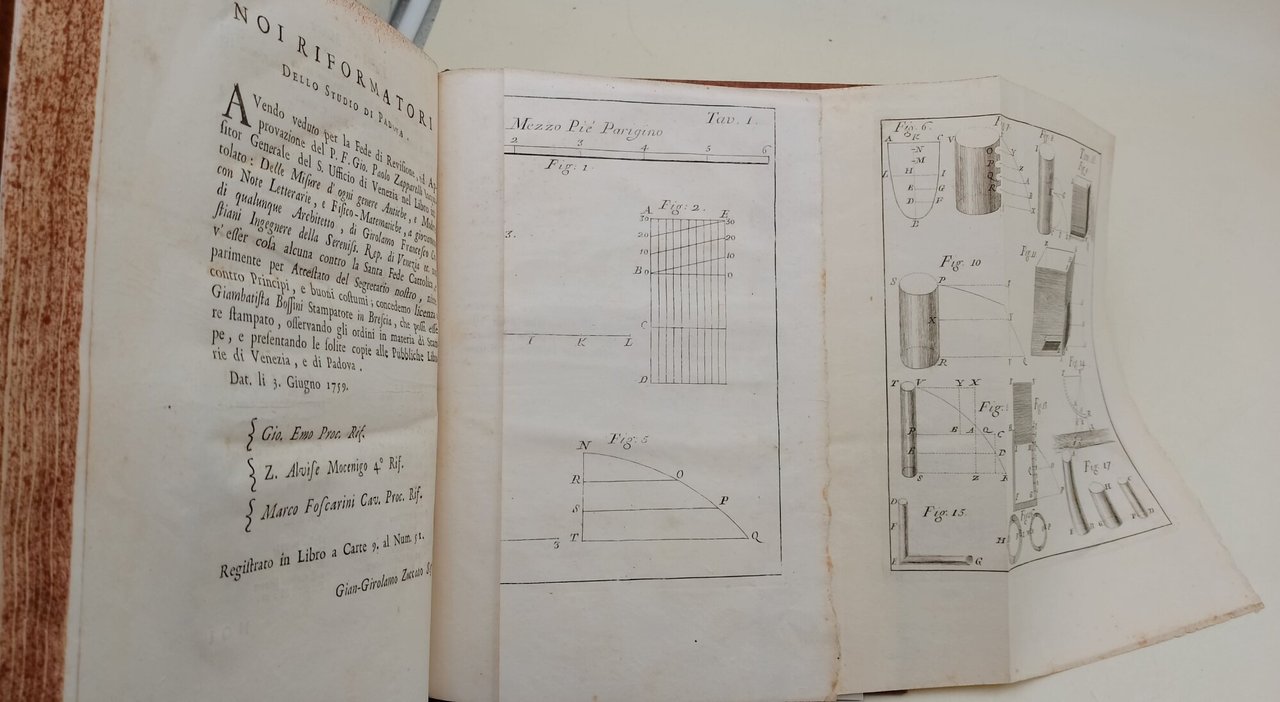 NOI RIFORMATORI
DELLO STUDIO DI PADOVA.
AVendo veduto per la Fede di Revisione, ed Ap-
provazione del P. F. Gio. Paolo Zapparella
sitor Generale del S. Uffizio di Venezia nel Libro
tolato: Delle Misure d'ogni genere Antiche, e
con Note Letterarie, e Fisico-Matematiche, a
di qualunque Architetto, di Girolamo Francesco
stiani Ingegnere della Sereniss. Rep. di Venezia ec.
v'esser cosa alcuna contro la Santa Fede Cattolica,
parimente per Attestato del Segretario nostro,
contro Principi, e buoni costumi; concedemo licenza
Giambatista Bossini Stampatore in Brescia, che possi esse
re stampato, osservando gli ordini in materia di Stam
pe, e presentando le solite copie alle Pubbliche Libre
rie di Venezia, e di Padova.
Dat. li 3. Giugno 1759.
{ Gio. Emo Proc. Rif.
{ Z. Alvise Mocenigo 4.º Rif.
{ Marco Foscarini Cav. Proc. Rif.
Registrato in Libro a Carte 9. al Num. 51.
Gian-Girolamo Zuccato
Tav. 1.
Mezzo Piè Parigino
2 3 4 5 6
Fig. 1.
Fig. 2.
A E
30 30
20 20
10 10
B 0 0
C
D
3.
I K L
Fig. 5
N
R O
S P
3 T Q
Fig. 6.
A K C V
N
M
H
L I
E G
D F
B
O
P
Q
R
Fig. 10
S P
X
R Q
T V Y X
Fig.
P B A Q C
E D
S Z R
Fig. 15
D
F
E G
Fig. 17
H